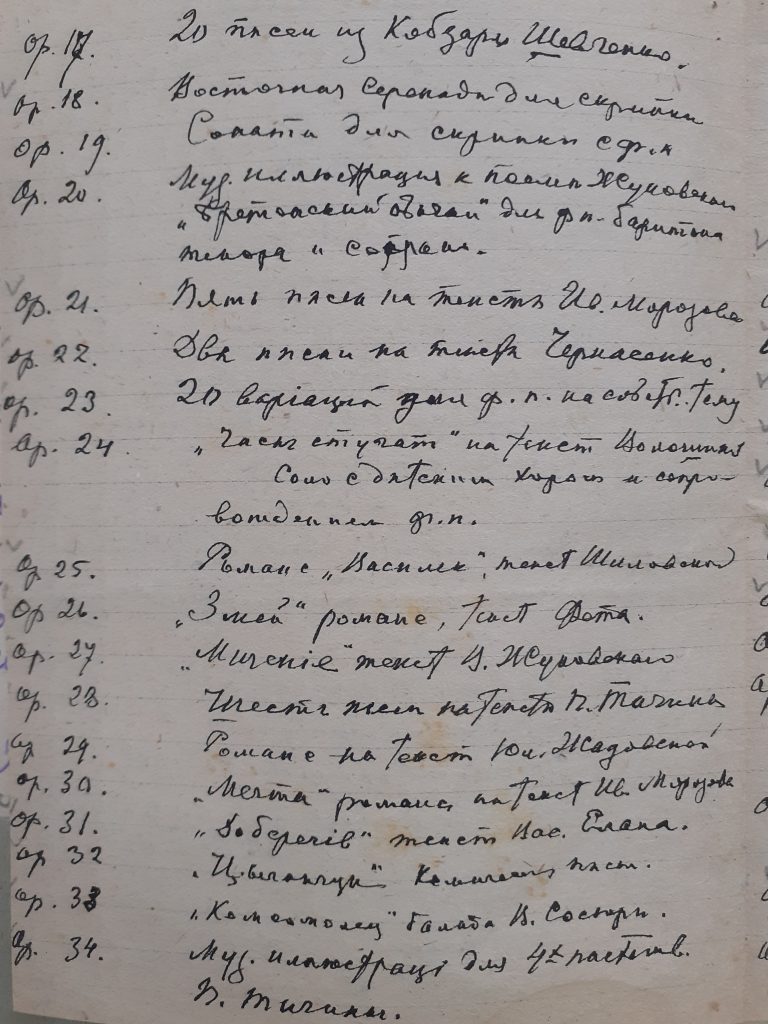 Ор. 17. 20 пѣсен из Кобзаря Шевченко.
Ор. 18. Восточная серенада для скрипки
Ор. 19. Соната для скрипки с ф.п
Ор. 20. Муз. иллюстрация к поэмѣ Жуковского
"Бретонский обычай" для фп. баритона
тенора и сопрано.
Ор. 21. Пять пѣсен на тексты Ив. Морозова
Ор. 22. Двѣ пѣсни на тексты Черкасенко.
Ор. 23. 20 варіаций для ф. п. на собств. тему
Ор. 24. "Часы стучат" на текст Волошина
Соло с дѣтским хором и сопро-
вождением ф.п.
Ор 25. Романс "Василек", текст Шиловской
Ор 26. "Змей" романс, текст Фета.
Ор. 27. "Мщеніе" текст В. Жуковского
Ор. 28. Шесть пѣсен на тексты П. Тычины
Ор 29. Романс на текст Юл. Жадовской
Ор. 30. "Мечта" романс на текст Ив. Морозова
Ор. 31. текст Вас. Елана.
Ор 32 пѣсн.
Ор. 33 "Комсомолец" балада В. Сосюры.
Ор. 34. Муз. иллюстраці для 4х
П. Тычины.